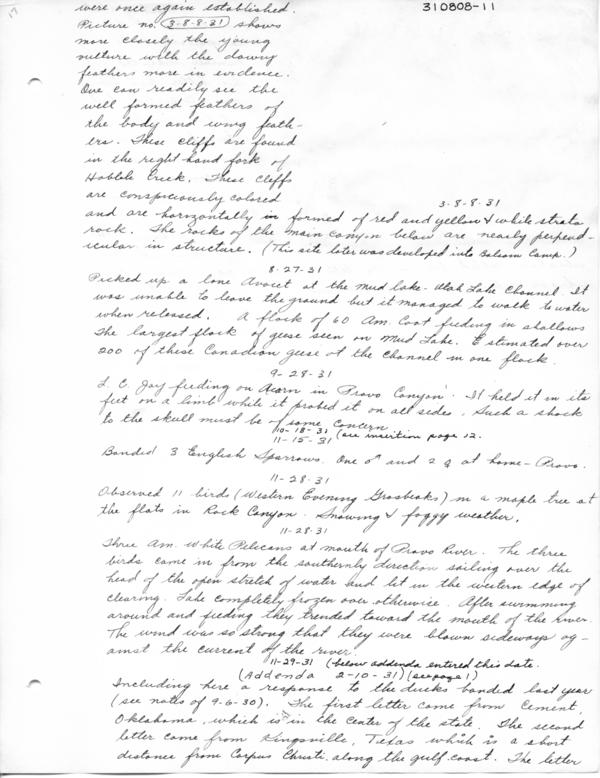 were once again established.
310808-11
Picture no. 3-8-8-31 shows
more closely the young
vulture with the downy
feathers more in evidence.
One can readily see the
well formed feathers of
the body and wing feath-
ers. These cliffs are found
in the right hand fork of
Hobble Creek. These cliffs
are conspicuously colored
3-8-8-31
and are horizontally in formed of red and yellow & white strata
rock. The rocks of the main canyon below are nearly perpend-
icular in structure. (This site later was developed into Balsam Camp.)
8-27-31
Picked up a lone Avocet at the mud lake - Utah Lake Channel. It
was unable to leave the ground but it managed to walk to water
when released. A flock of 60 Am. Coot feeding in shallows
The largest flock of geese seen on Mud Lake. Estimated over
200 of these Canadian geese at the Channel in one flock.
9-28-31
L. C. Jay feeding on Acorn in Provo Canyon. It held it in its
feet on a limb while it probed it on all sides. Such a shock
to the skull must be of some concern
10-18-31 (see insertion page 12.
11-15-31
Banded 3 English Sparrows. One ♂ and 2 ♀ at home - Provo.
11-28-31
Observed 11 birds (Western Evening Grosbeaks) in a maple tree at
the flats in Rock Canyon. Snowing & foggy weather.
11-28-31
Three Am. White Pelicans at mouth of Provo River. The three
birds came in from the southernly direction sailing over the
head of the open stretch of water and let in the western edge of
clearing. Lake completely frozen over otherwise. After swimming
around and feeding they trended toward the mouth of the river.
The wind was so strong that they were blown sideways ag-
ainst the current of the river.
11-29-31 (below addenda entered this date.
(Addenda 2-10-31) (see page 1)
Including here a response to the ducks banded last year
(see notes of 9-6-30). The first letter came from Cement,
Oklahoma, which is in the center of the state. The second
letter came from Kingsville, Texas which is a short
distance from Corpus Christi, along the gulf coast. The letter